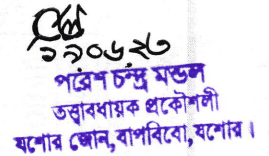 ১৯০৬২৩
পরেশ চন্দ্র মন্ডল
তত্ত্বাবধায়ক প্রকৌশলী
যশোর জোন, বাপবিবো, যশোর।